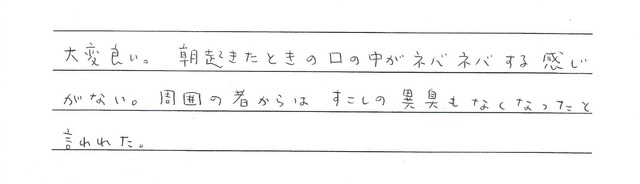 大変良い。朝起きたときの口の中がネバネバする感じ
がない。周囲の者からは すこしの異臭もなくなったと
言われた。